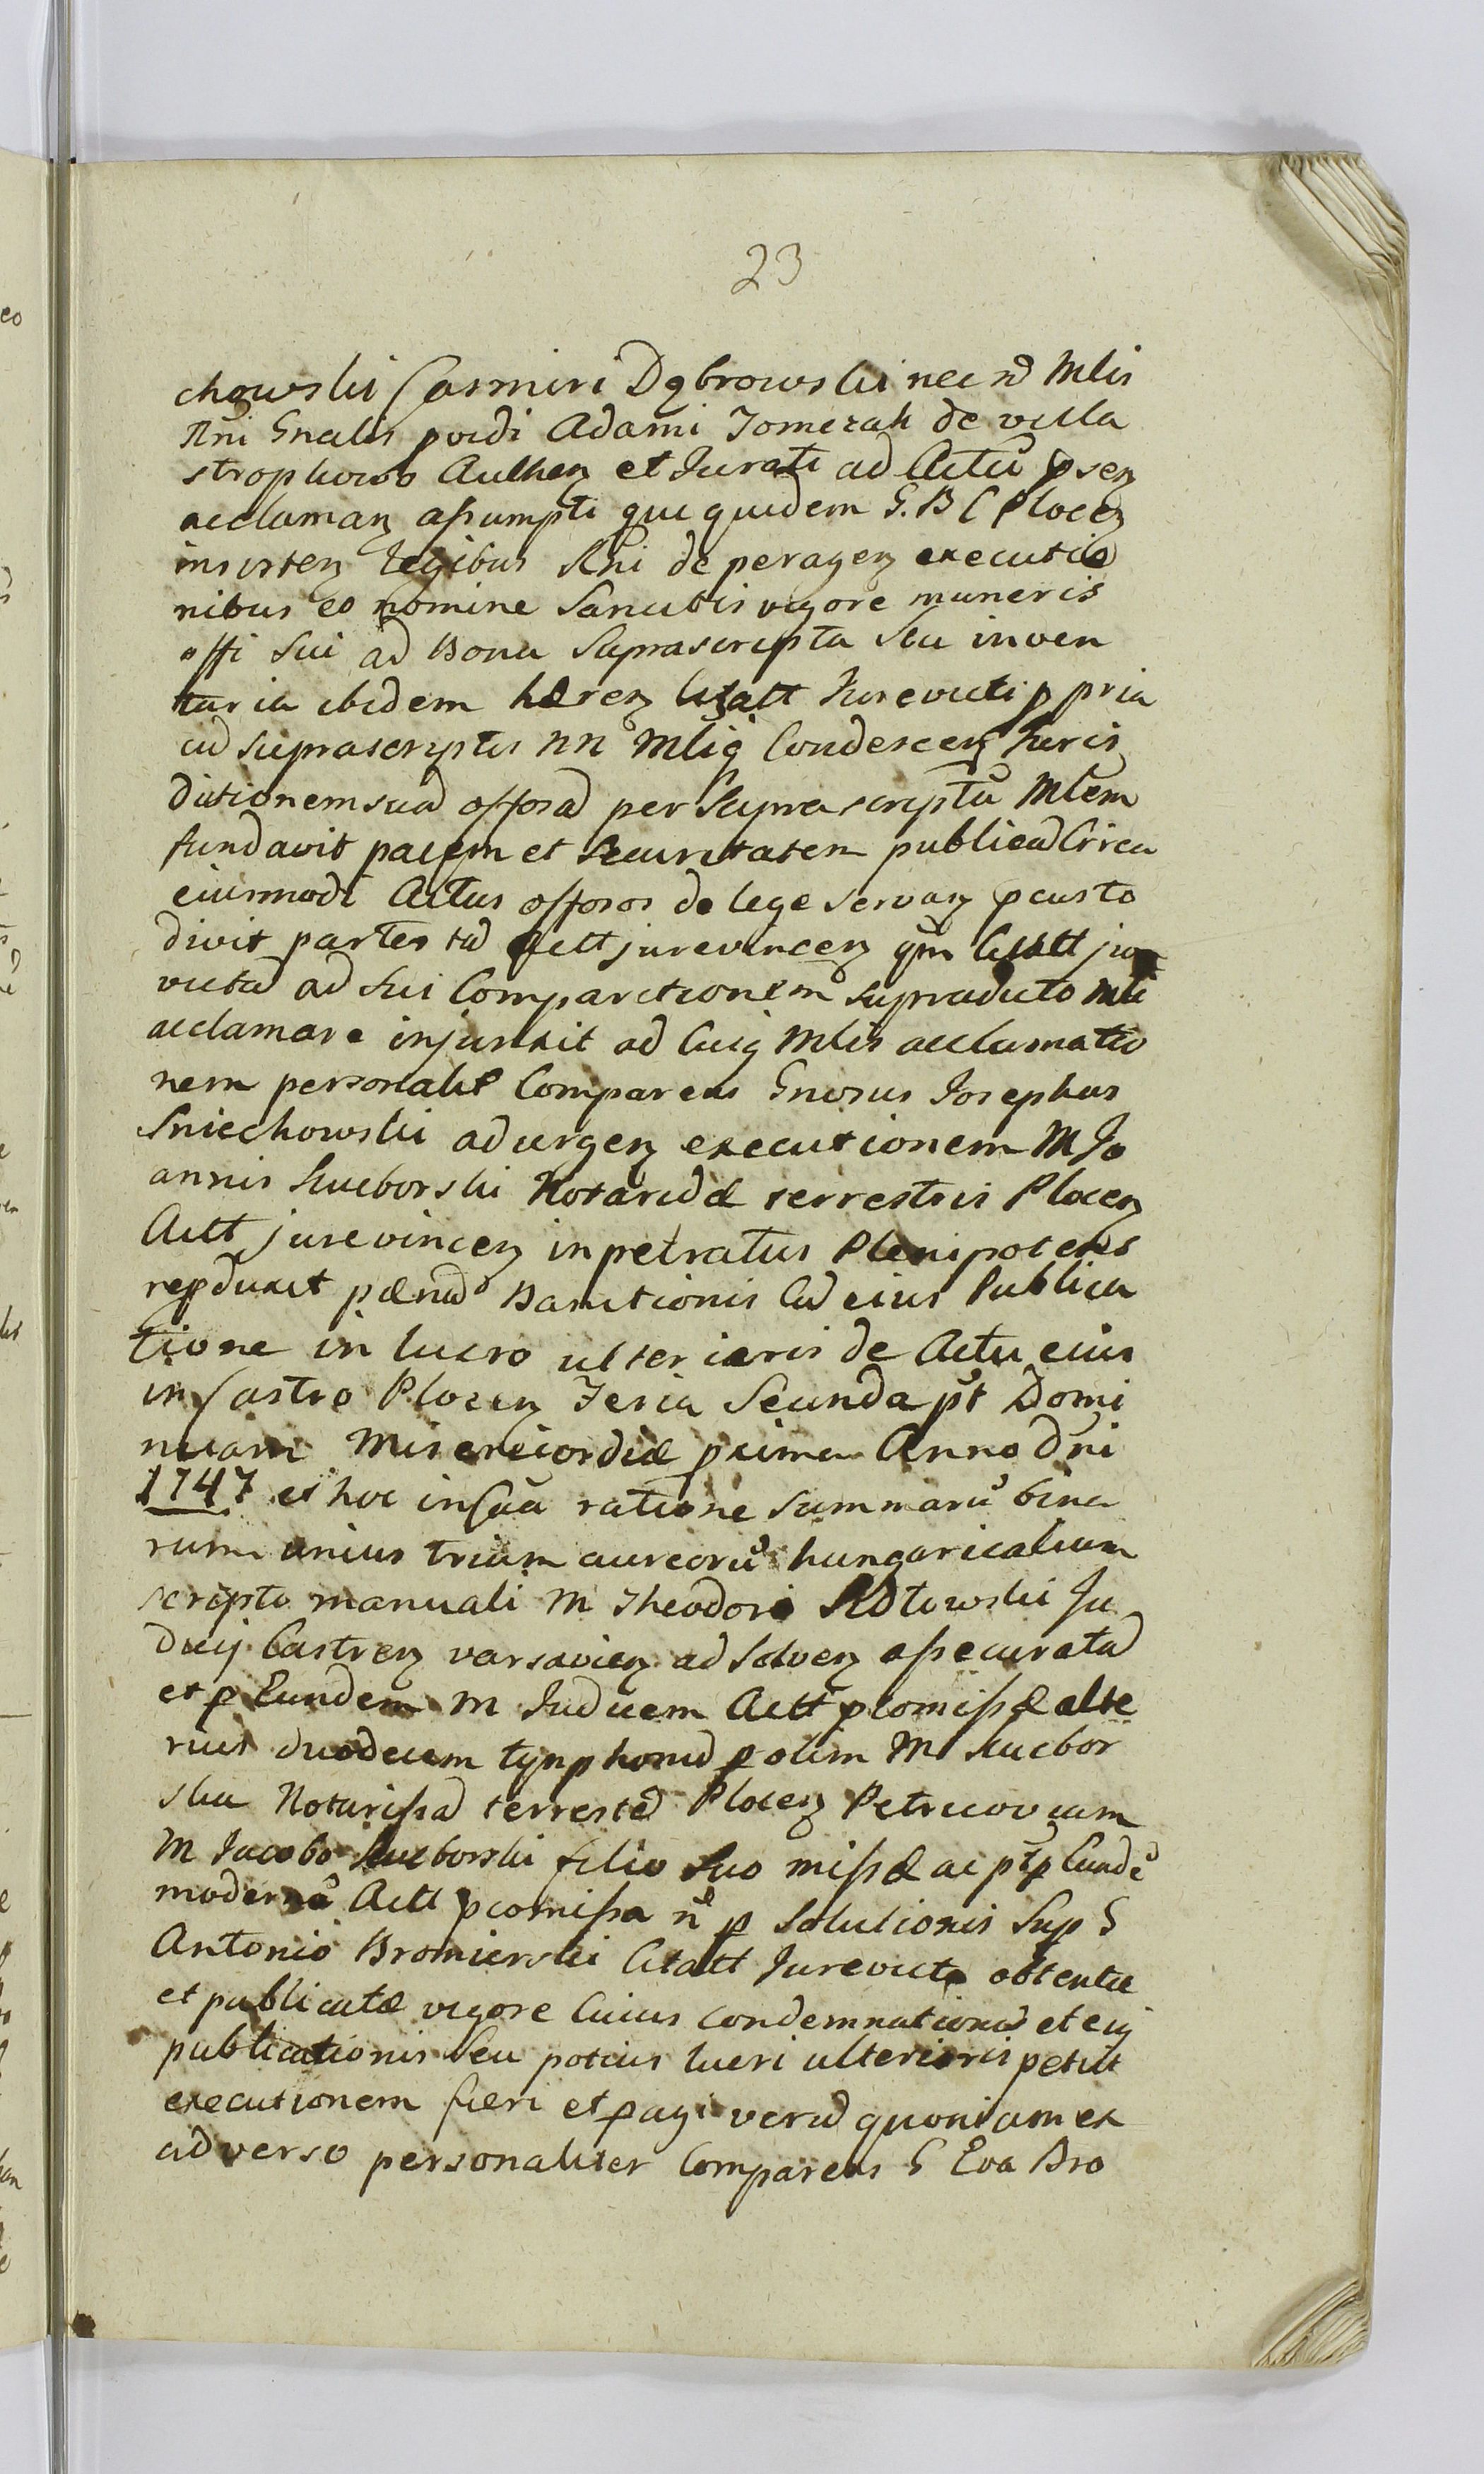 23
chowski Casmiri Dąbrowski nec nō Mlis
Rni Gnalis pvidi Adami Tomczak de villa
strophowo Authen et Jurati ad Actū psen
acclaman assumpti qui quidem G. B C Plocen
insisten legibus Rni de peragen executio
nibus eo nomine Sancitis vigore muneris
offi Sui ad Bona Suprascripta Seu inven
taria ibidem hæren Citatt Jurevicti ppria
cū suprascriptis NN Mliq Condescen Juris
dictionem suā offosā per Supra scriptū Mlem
fundavit pacem et Securitatem publicā Circa
eiusmodi Actus offosos de lege servan pcusto
divit partes tā Actt jurevincen qm Citatt jure
victā ad sui Comparitionem supradicto Mli
acclamare injunxit ad Cuiq Mlis acclamatio
nem personalit Comparens Gnosus Josephus
Sniechowski ad urgen executionem M Jo
annis Skueborski Notaridæ terrestris Plocen
Actt jurevincen inpetratus Plenipotens
repduxit pænā Banitionis Cū eius Publica
tione in lucro ulterioris de Actu eius
in Castro Plocen Feria Secunda pt Domi
nicam Misericordiæ prima Anno Dni
1747 et hoc in Cāā ratione Summarū bina
rum unius trium aureorū hungaricalium
scripto manuali M Theodori Szdłowski Ju
dicij Castren varsavien ad Solven assecuratā
et p Eundem M Judicem Actt pcomissæ alte
rius duodecim tynphonū p olim M Skuebor
ska Notarissā terrestē Plocen Petricoviam
M Jacobo Skueborski filio Suo missæ ac pt p Eundē
modernū Actt pcomissa nō p Solutionis Sup G
Antonio Bromierski Citatt Jurevicto obtentæ
et publicatæ vigore Cuius condemnationis et eiq
publicationis Seu potius lucri ulterioris petiit
executionem fieri et pagi verū quoniam ex
adverso personaliter Comparens G Eva Bro